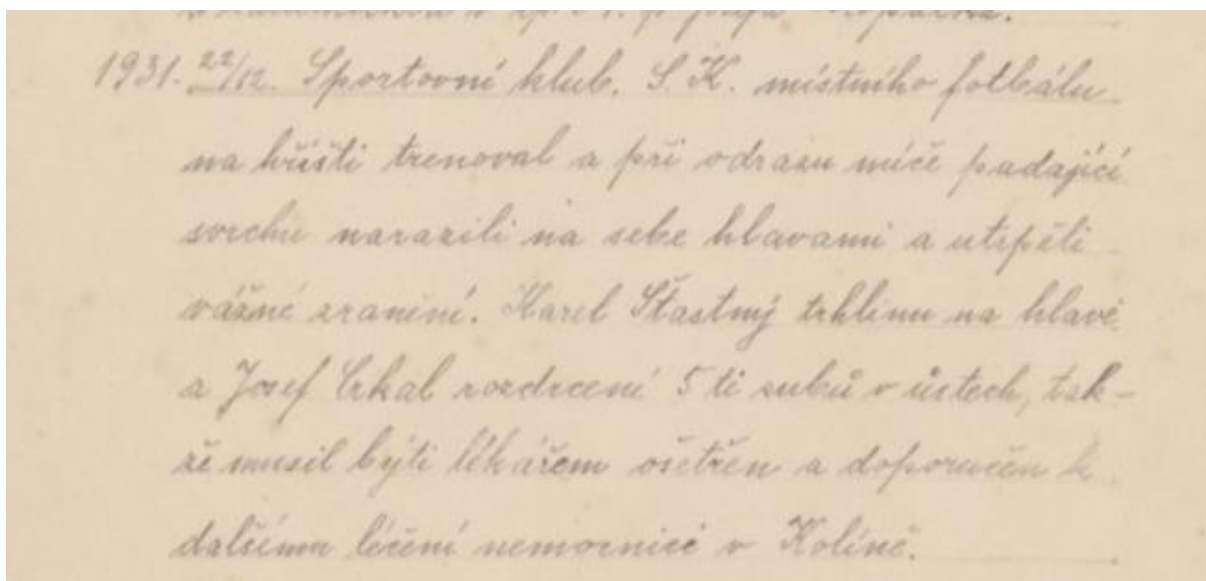 1931. 22/12. Sportovní klub. S. K. místního fotbálu
na hřišti trenoval a při odrazu míče padající
svrchu narazili na sebe hlavami a utrpěli
vážné zranění. Karel Šťastný trhlinu na hlavě
a Josef Crkal rozdrcení 5 ti zubů v ústech, tak-
že musil býti lékařem ošetřen a doporučen k
dalšímu léčení nemocnici v Kolíně.